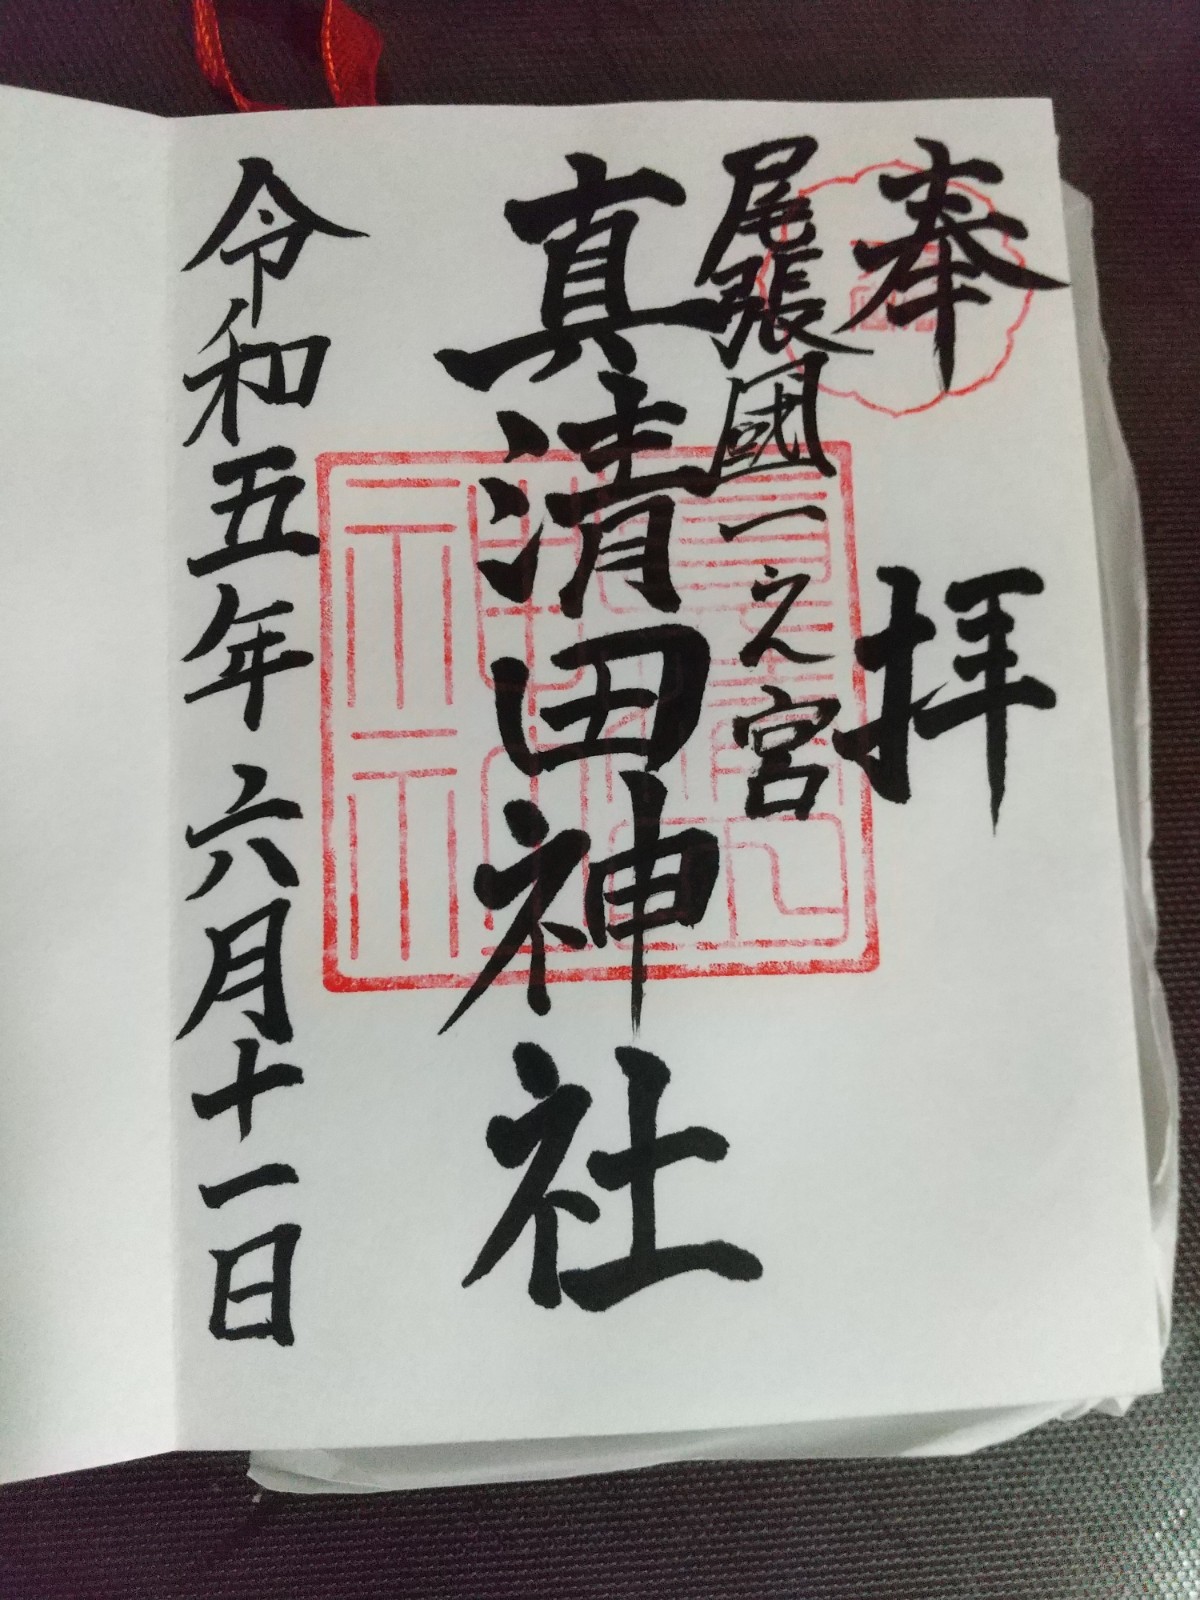 奉拝
尾張國一之宮
真清田神社
令和五年六月十一日